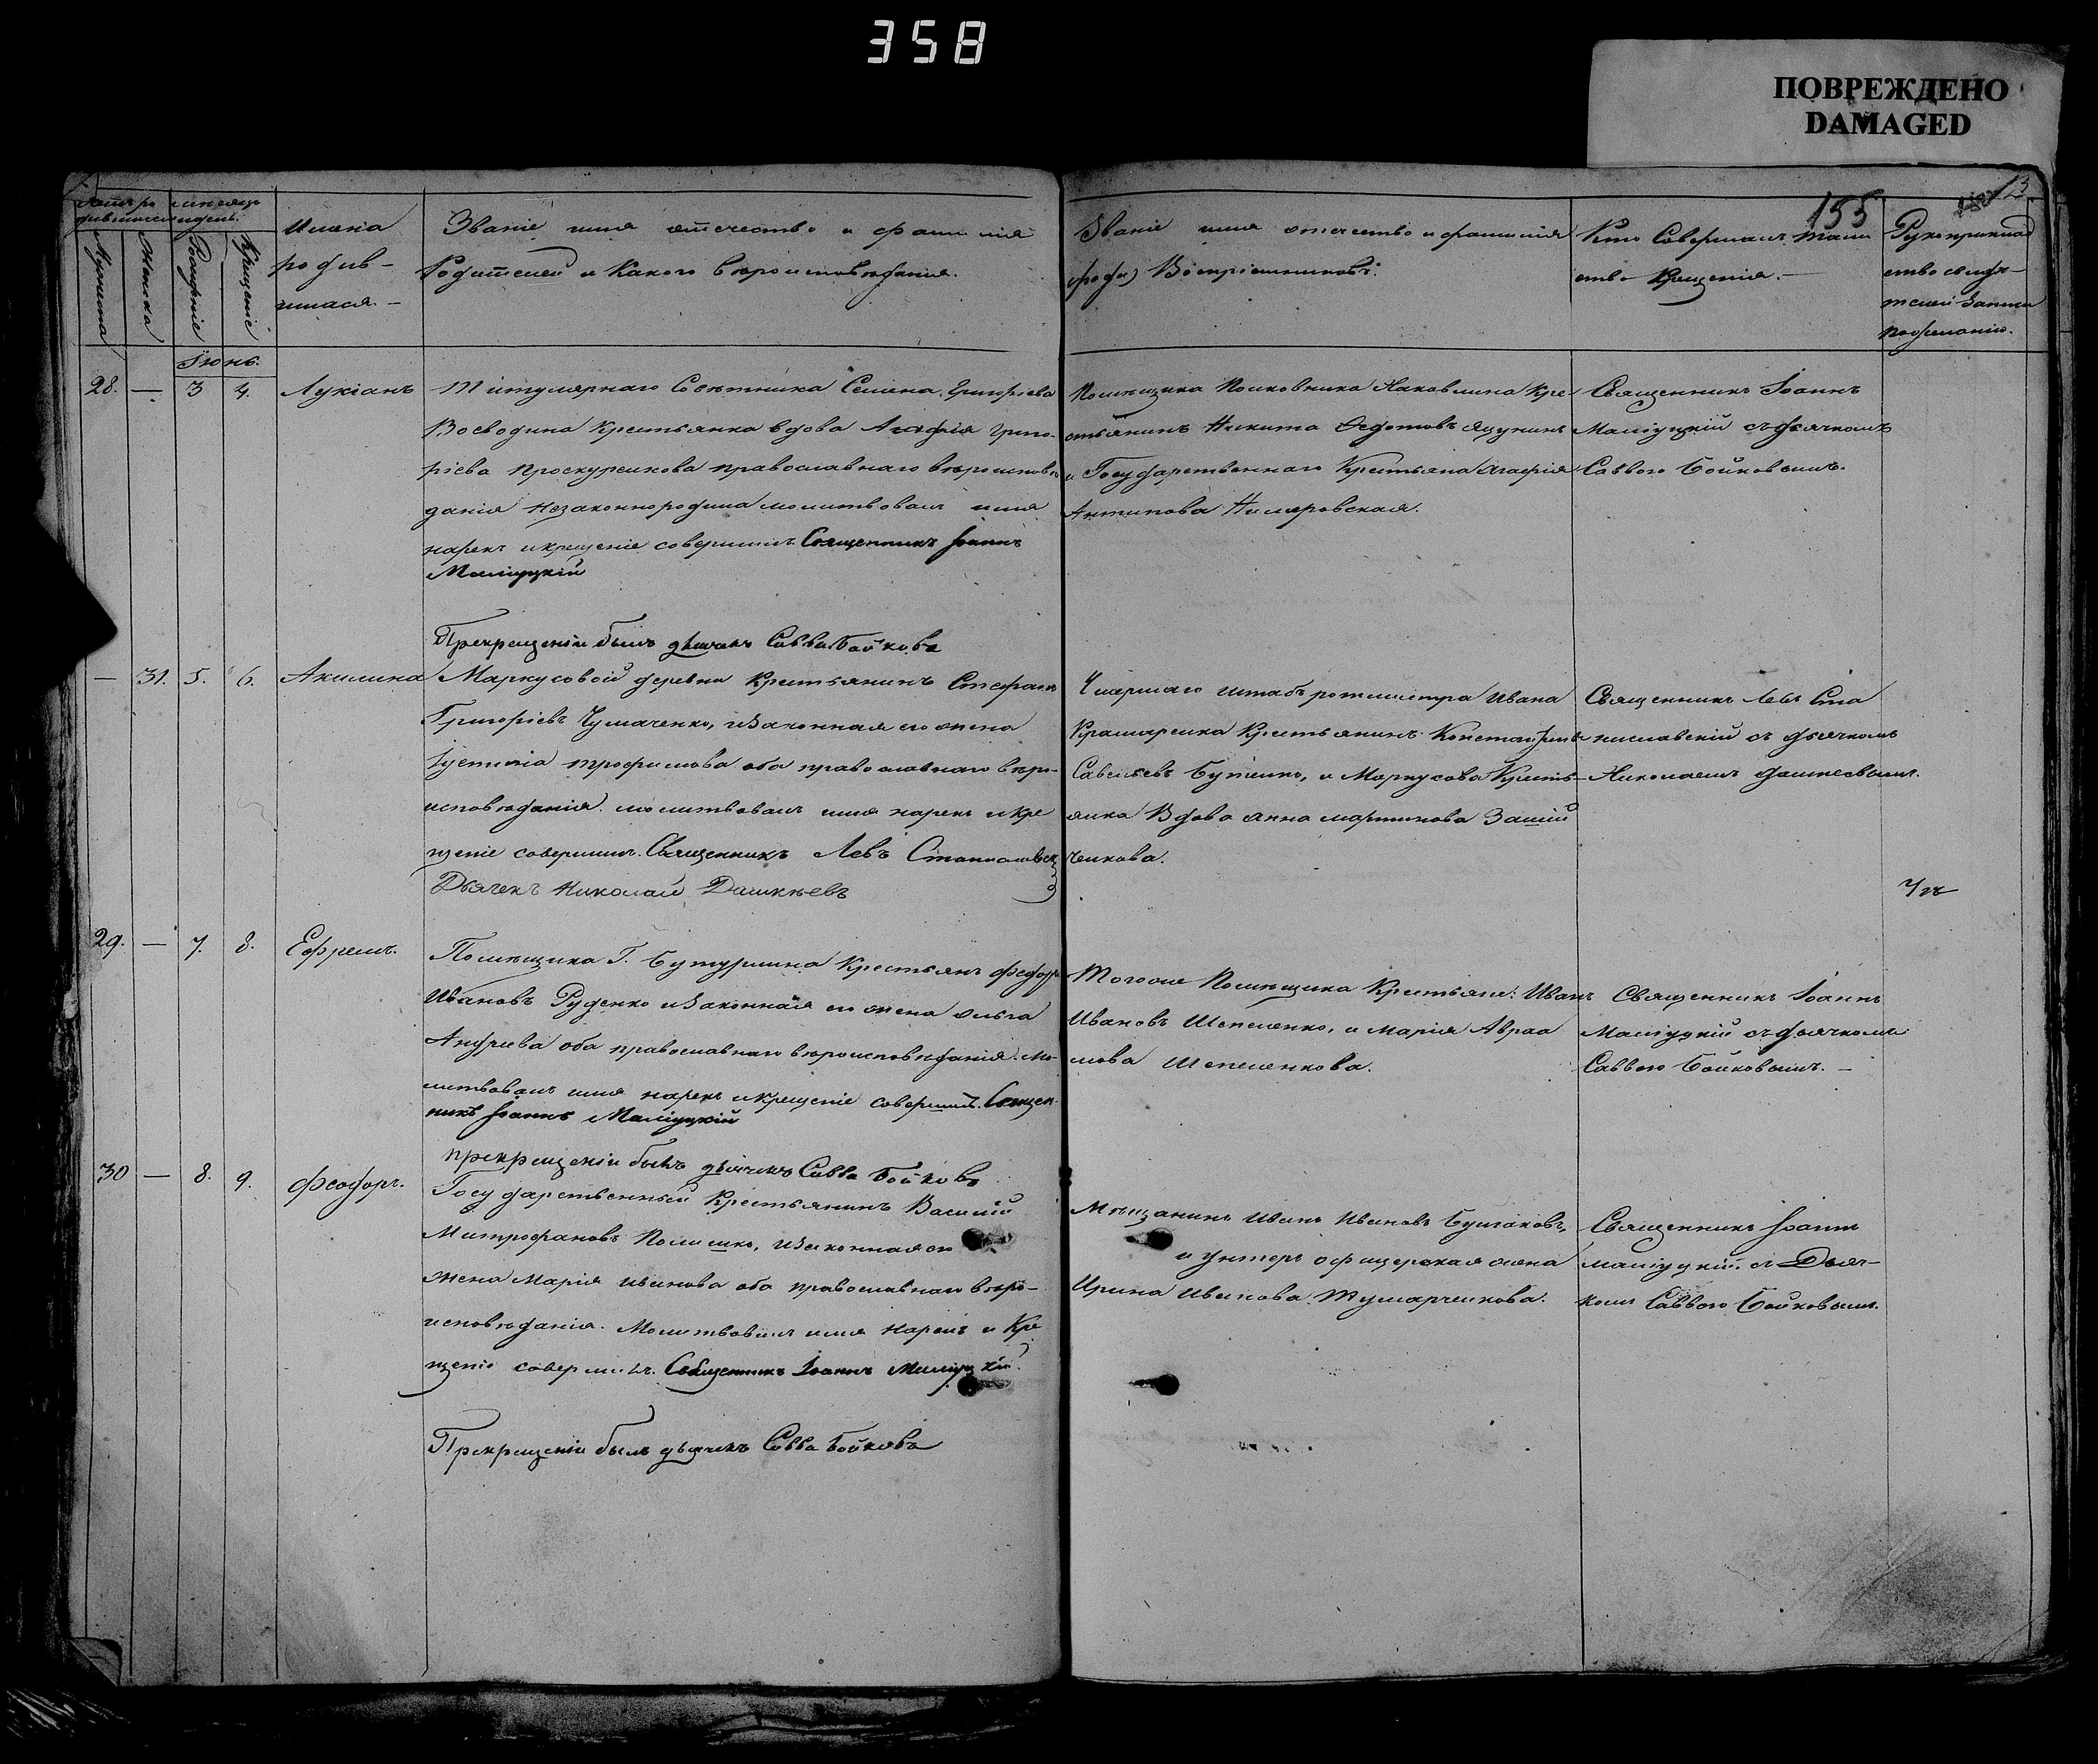 358
ПОВРЕЖДЕНО
DAMAGED
155
13
Имена
родив-
шихся.
Званіе имя отечество и фамилія
Родителей и Какого вѣроисповѣданія.
Званіе имя отечество и фамилія
Воспріемниковъ.
Кто Совершалъ таин
ство Крещенія.
Рукоприклад
ство свидѣ-
телей записи
по желанію.
Мужеска
Женска
Рожденіе
Крещеніе
Іюнь.
28. — 3 4. Лукіанъ
Титулярнаго Совѣтника Семена Григорьева
Воеводина Крестьянка вдова Агафія Григо-
ріева Проскурникова православнаго вѣроисповѣ
данія незаконнородила молитвовалъ имя
нарекъ и крещеніе совершилъ Священникъ Іоаннъ
Маліуцкій
Помѣщика Полковника Яковлина Кре-
стьянинъ Никита Федотовъ Яцунинъ
и Государственнаго Крестьяна Агафія
Антипова Нимеровская.
Священникъ Іоаннъ
Маліуцкій съ дьячкомъ
Саввою Бойковымъ.
При крещеніи былъ дьячекъ Савва Бойковъ
— 31. 5. 6. Акилина
Маркусовой деревни Крестьянинъ Стефанъ
Григоріевъ Чумаченко, и Законная его жена
Іустинія Трофимова оба православнаго вѣро-
исповѣданія. молитвовалъ имя нарекъ и кре
щеніе совершилъ. Священникъ Левъ Станиславскій
Дьячекъ Николай Дашкѣевъ
Умершаго Штабъ ротмистра Ивана
Крамарева Крестьянинъ Константинъ
Савельевъ Бутенко, и Маркусова Кресть-
янка Вдова Анна Мартинова Заший
ченкова.
Священникъ Левъ Ста
ниславскій съ дьячкомъ
Николаемъ Дашкеевымъ.
29. — 7. 8. Ефремъ.
Помѣщика Г. Бутурлина Крестьянъ Федоръ
Ивановъ Руденко и Законная его жена Ольга
Андреева оба православнаго вѣроисповѣданія. Мо-
литвовалъ имя нарекъ и крещеніе совершилъ. Священ-
никъ Іоаннъ Маліуцкій
Тогоже Помѣщика Крестьяне: Иванъ
Ивановъ Шепеленко, и Марія Авраа
мова Шепеленкова.
Священникъ Іоаннъ
Маліуцкій съ дьячкомъ
Саввою Бойковымъ. —
при крещеніи былъ дьячекъ Савва Бойковъ
30 — 8. 9. Феодоръ.
Государственный Крестьянинъ Василій
Митрофановъ Полишко, и Законная его
жена Марія Иванова оба православнаго вѣро-
исповѣданія. Молитвовалъ имя нарекъ и Кре
щеніе совершилъ. Священникъ Іоаннъ Маліуцкій.
Мѣщанинъ Иванъ Ивановъ Булгаковъ,
и унтеръ офицерская жена
Ирина Иванова Тумарченкова.
Священникъ Іоаннъ
Маліуцкій съ Дьяч-
комъ Саввою Бойковымъ.
При крещеніи былъ дьячекъ Савва Бойковъ